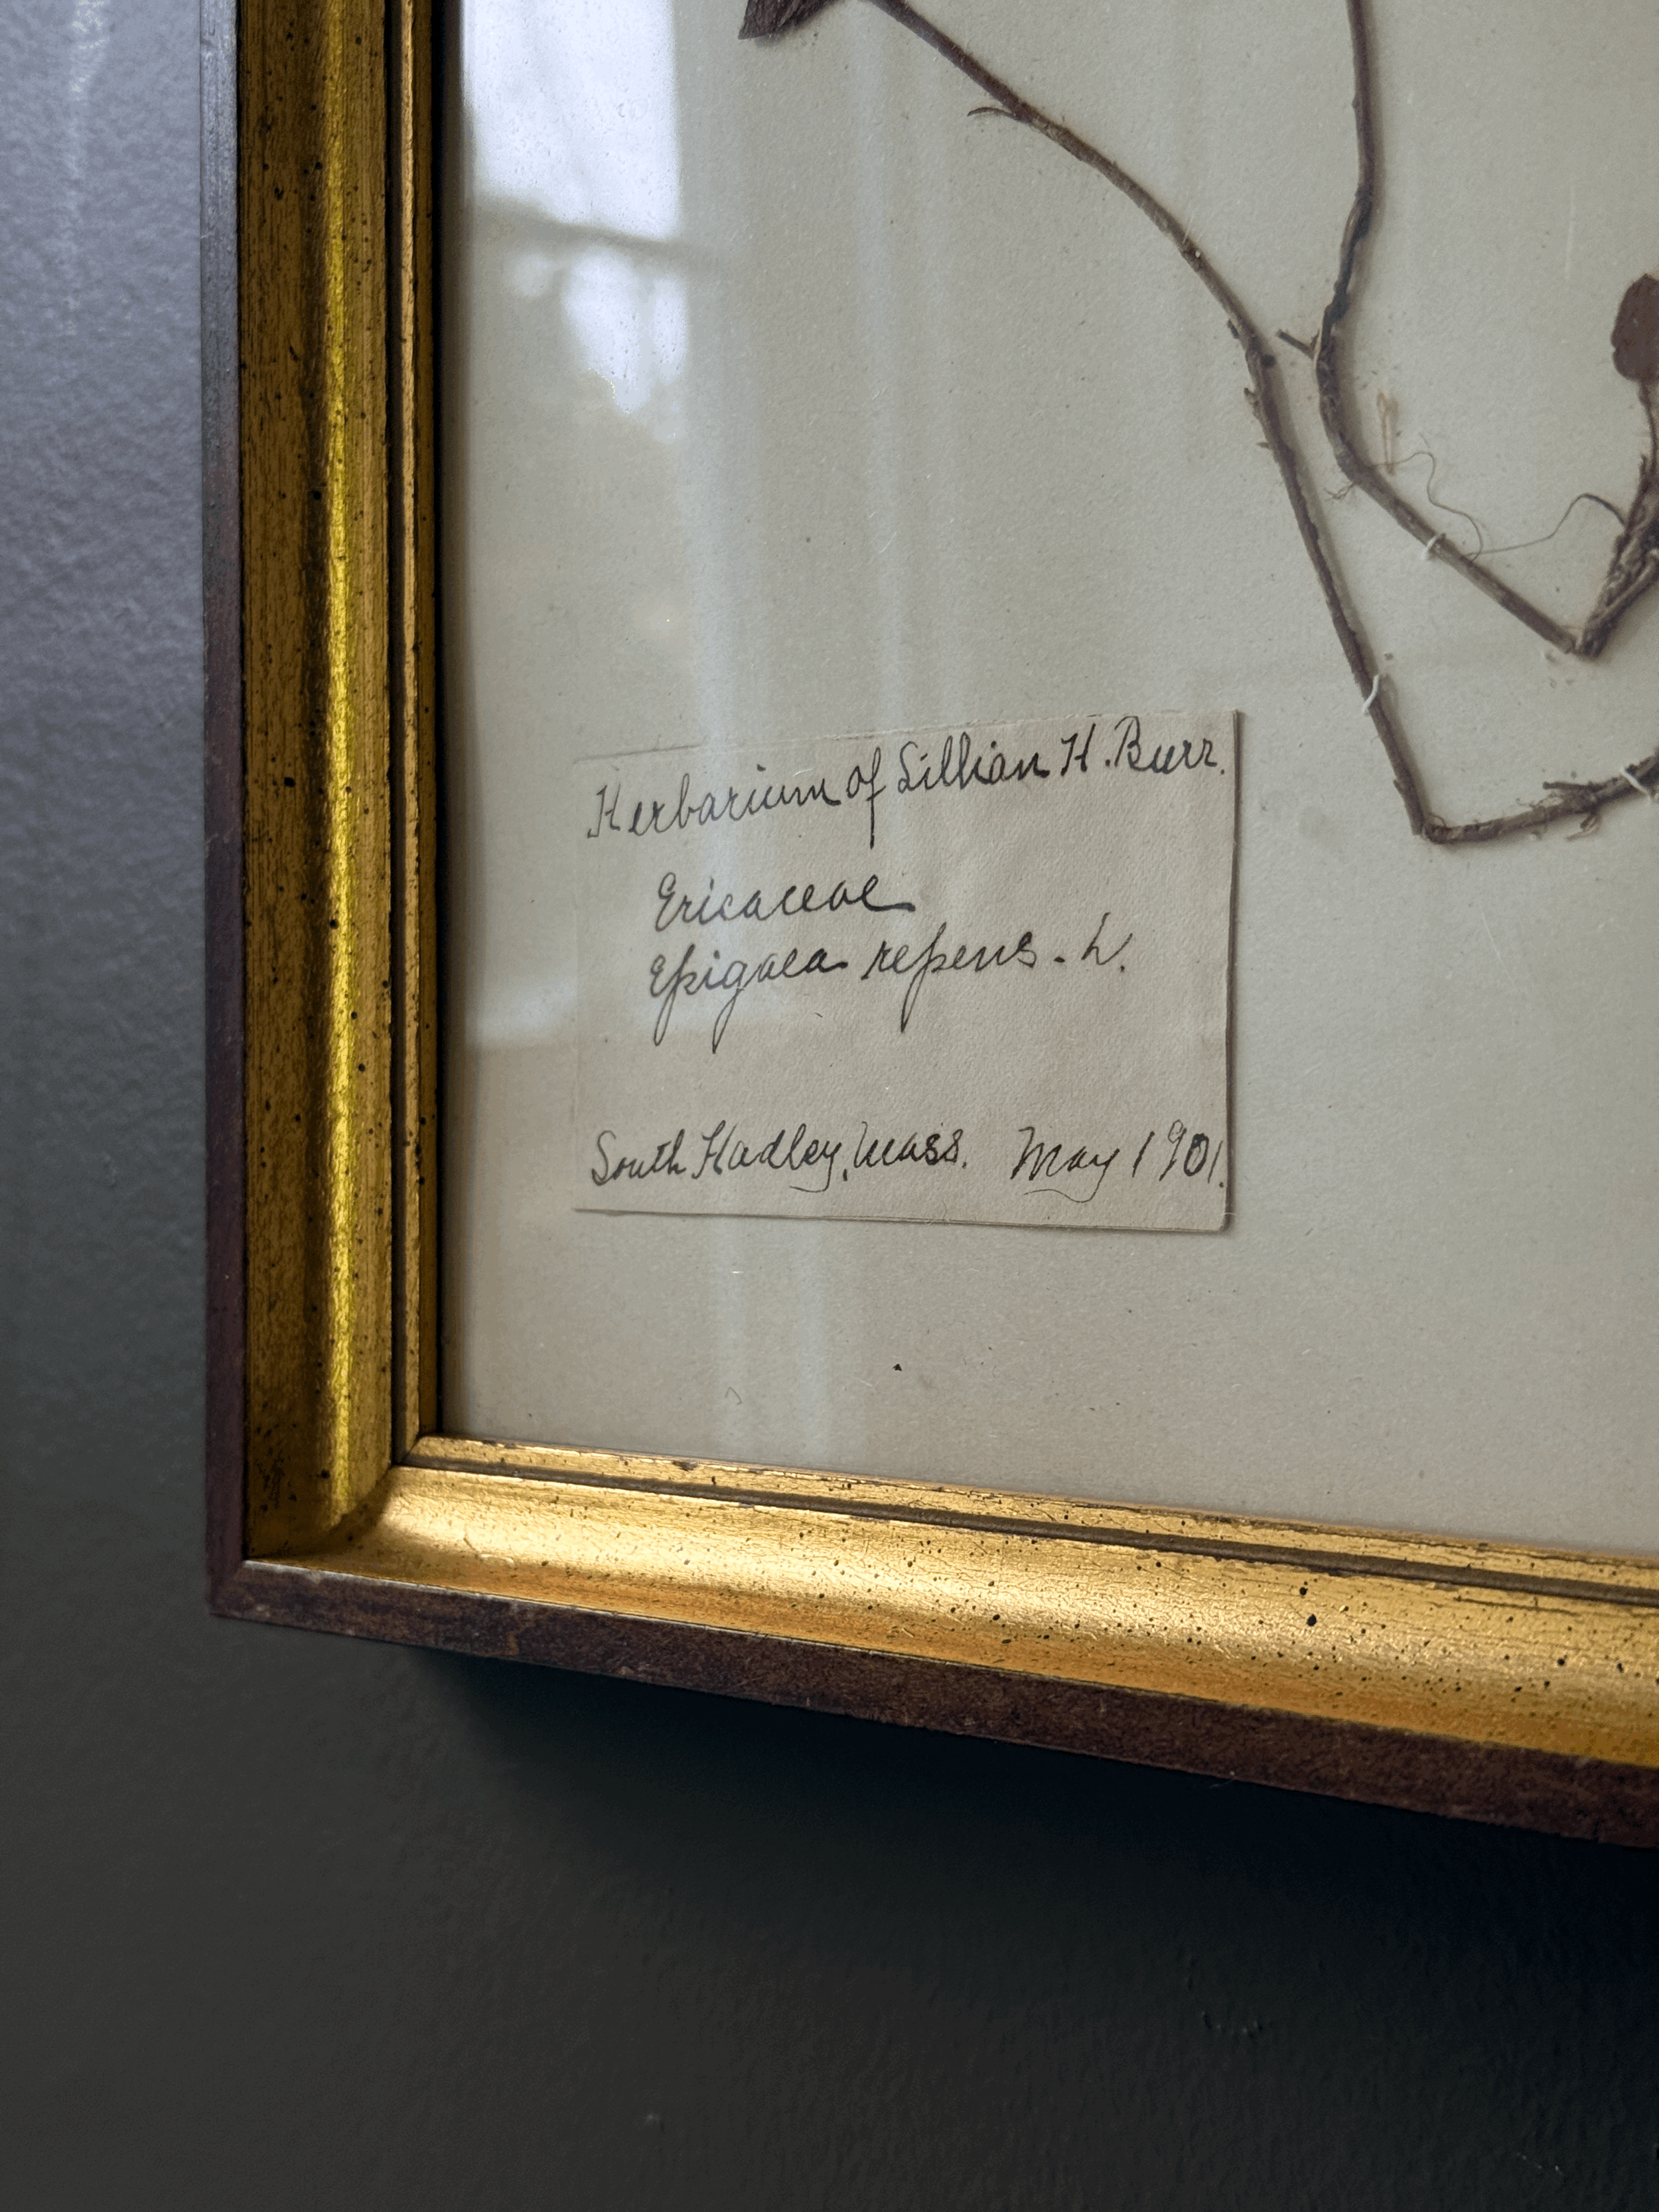 Herbarium of Lillian H. Burr.
Ericaceae
Epigaea repens - L.
South Hadley, Mass. May 1901.